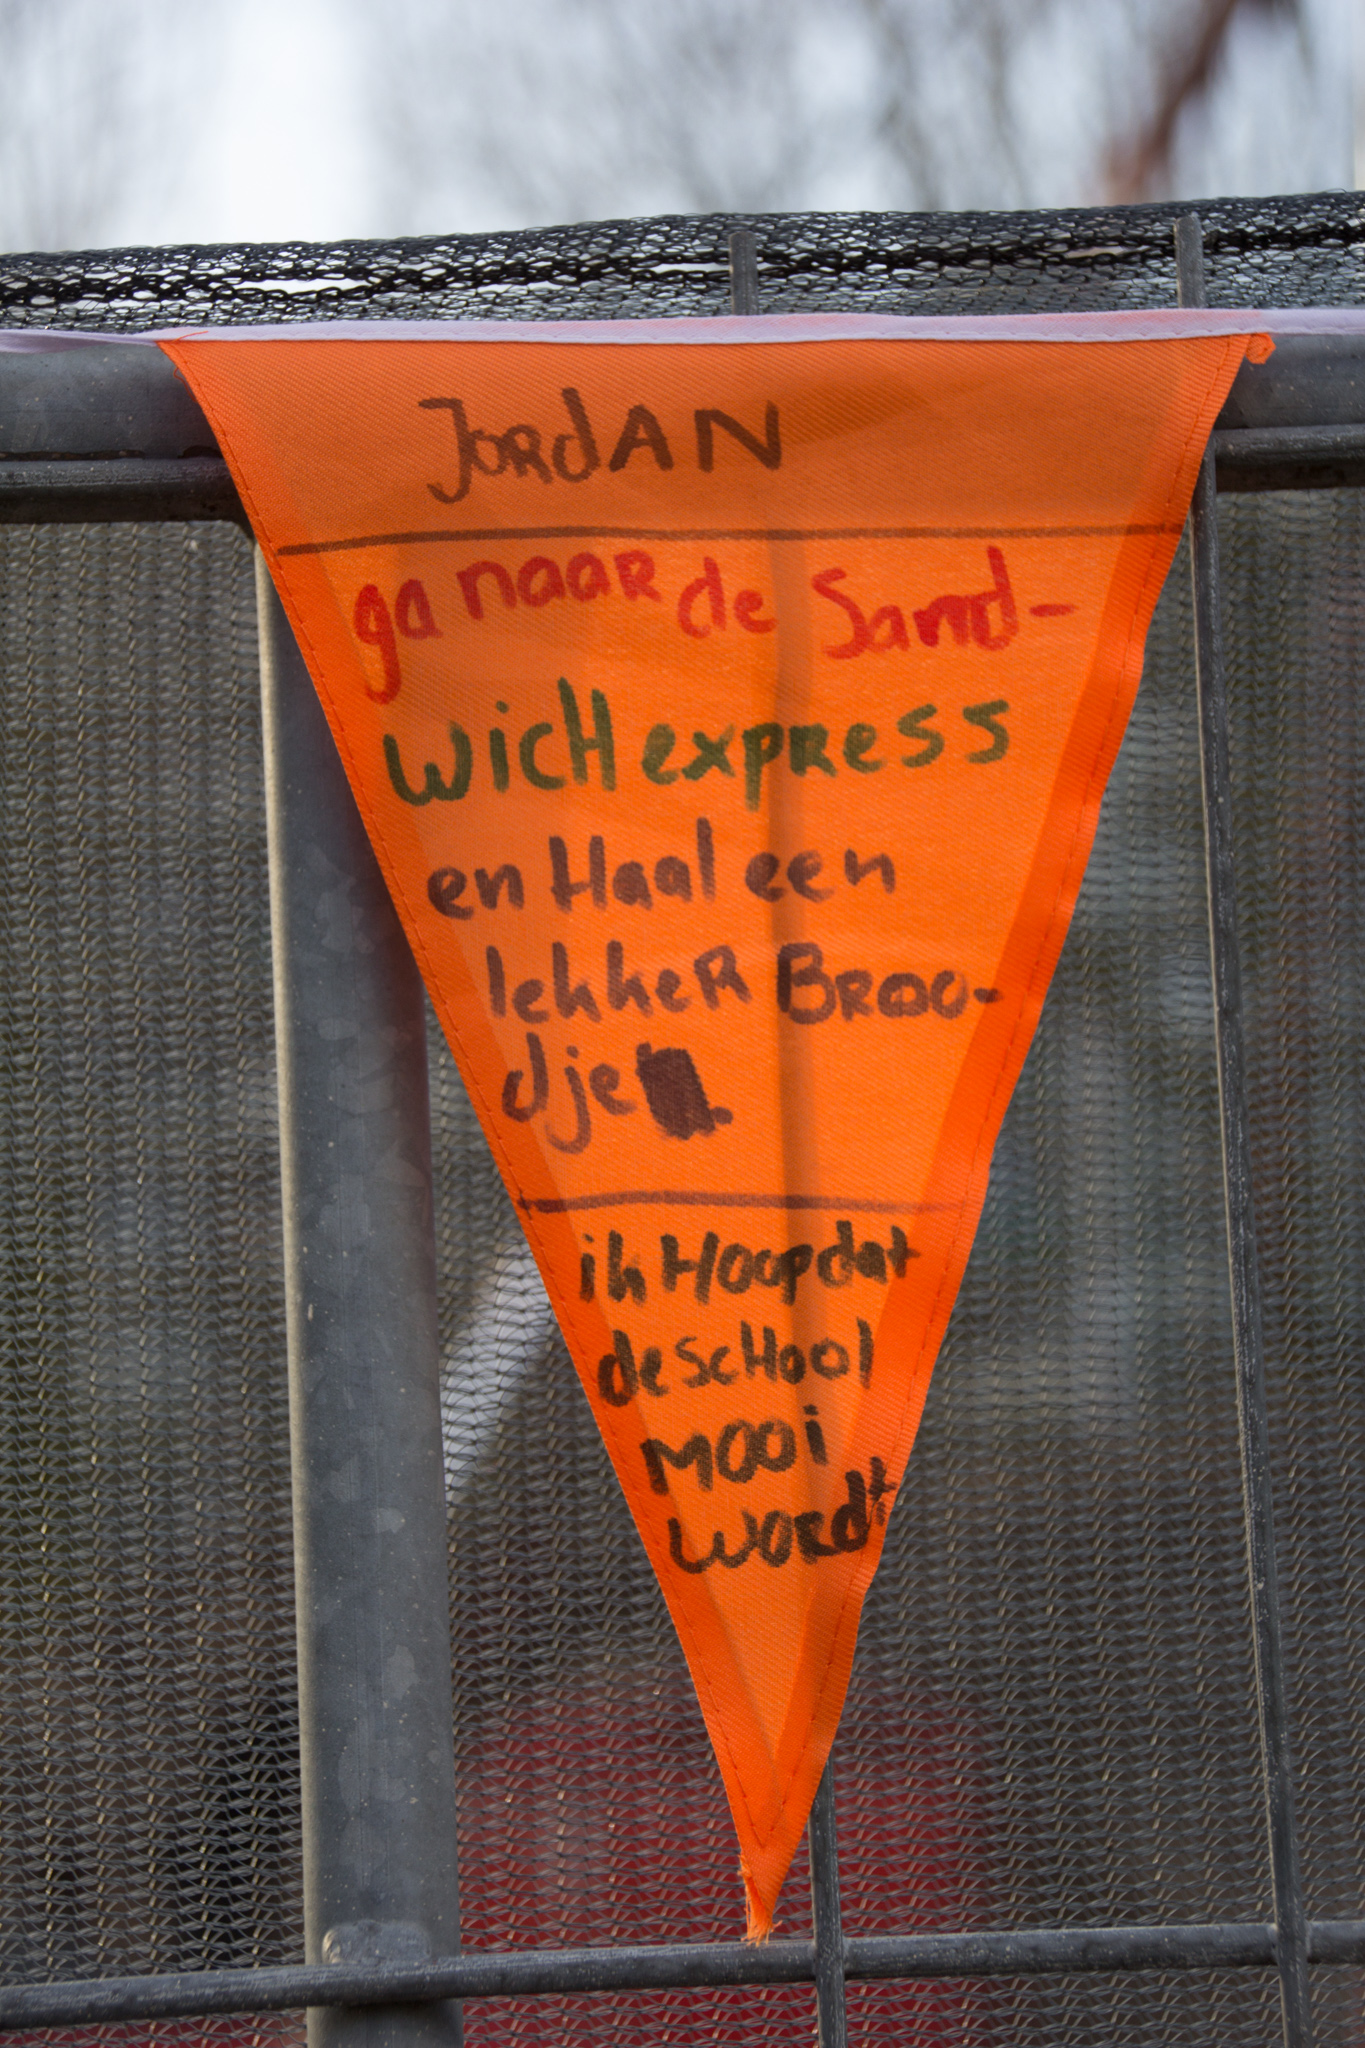 JORdAN
ga naaR de Sand-
WicH expRess
en Haal een
lekkeR BRoo-
dje.
ik Hoop dat
de scHool
Mooi
WoRdt